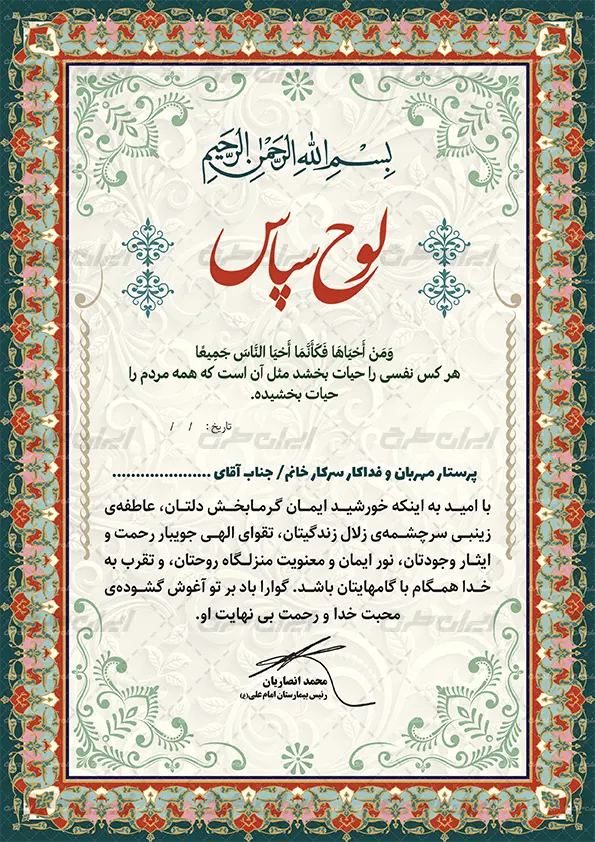 بِسْمِ اللهِ الرَّحْمٰنِ الرَّحِیمِ
لوح سپاس
وَمَنْ أَحْيَاهَا فَكَأَنَّمَا أَحْيَا النَّاسَ جَمِيعًا
هر کس نفسی را حیات بخشد مثل آن است که همه مردم را
حیات بخشیده.
تاریخ: / /
پرستار مهربان و فداکار سرکار خانم/ جناب آقای .....................
با امید به اینکه خورشید ایمان گرمابخش دلتان، عاطفه‌ی
زینبی سرچشمه‌ی زلال زندگیتان، تقوای الهی جویبار رحمت و
ایثار وجودتان، نور ایمان و معنویت منزلگاه روحتان، و تقرب به
خدا همگام با گامهایتان باشد. گوارا باد بر تو آغوش گشوده‌ی
محبت خدا و رحمت بی نهایت او.
محمد انصاریان
رئیس بیمارستان امام علی(ع)
ایران طرح